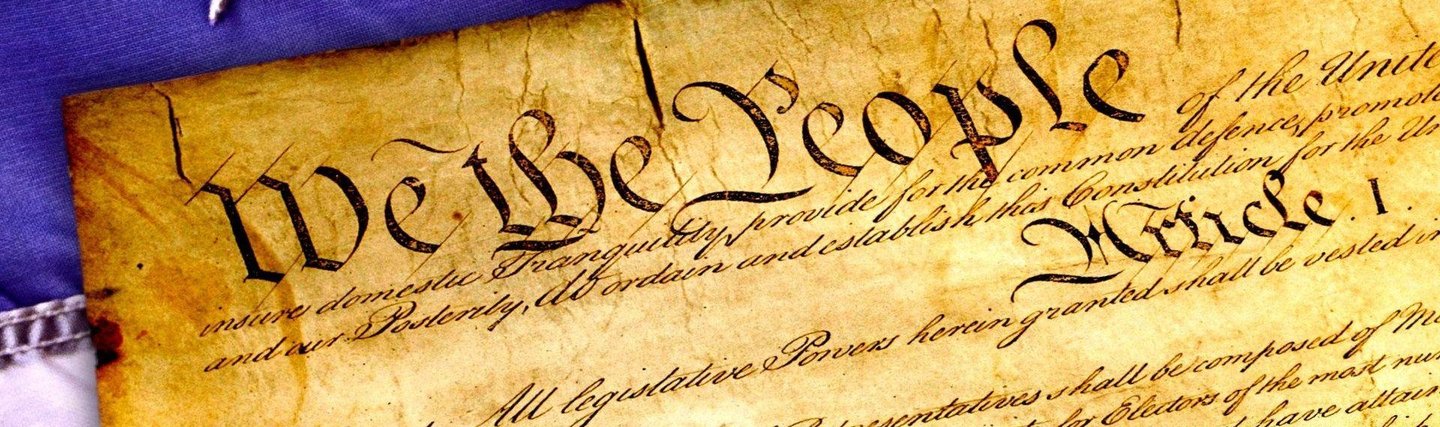 We the People of the Unite
insure domestic Tranquility, provide for the common defence, promote
and our Posterity, do ordain and establish this Constitution for the Un
Article. I.
All legislative Powers herein granted shall be vested in
esentatives shall be composed of Me
for Electors of the most num
have attain